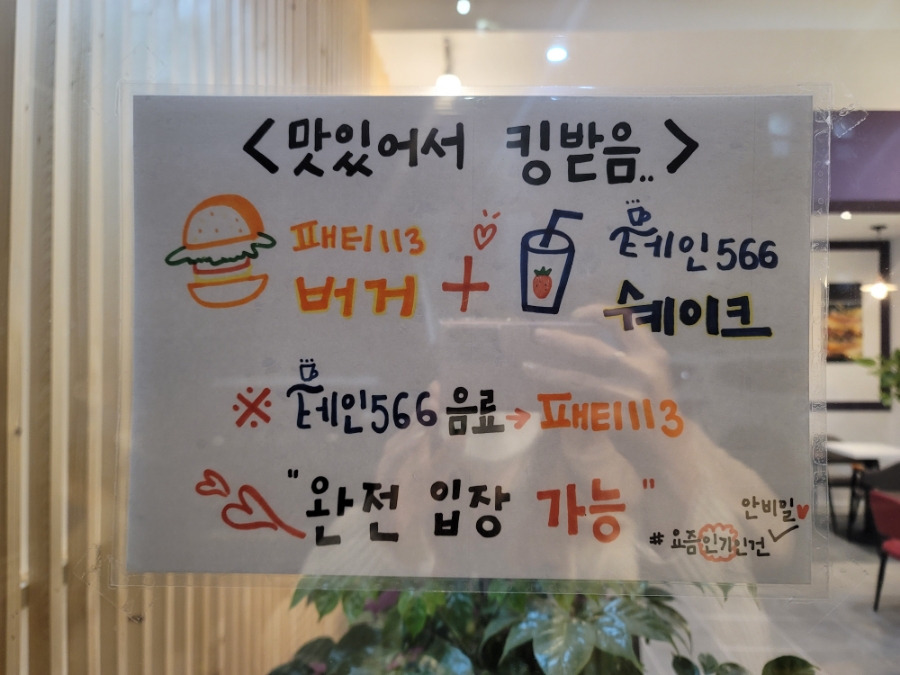 <맛있어서 킹받음..>
패티113
버거
+
테인566
쉐이크
※ 테인566 음료→패티113
"완전 입장 가능"
안비밀♥
#요즘인기인건